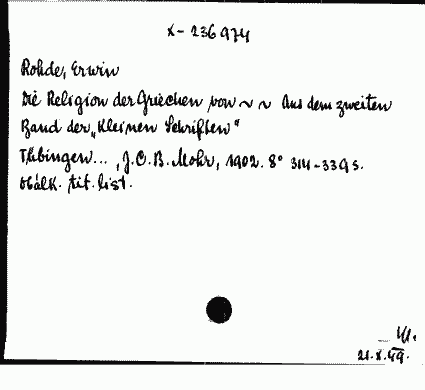 X-236974
Rohde, Erwin
Die Religion der Griechen von ~ ~ Aus dem zweiten
Band der „Kleinen Schriften"
Tübingen..., J.C.B. Mohr, 1902. 8° 314-339 s.
obálk. tit. list.
21.X.49.